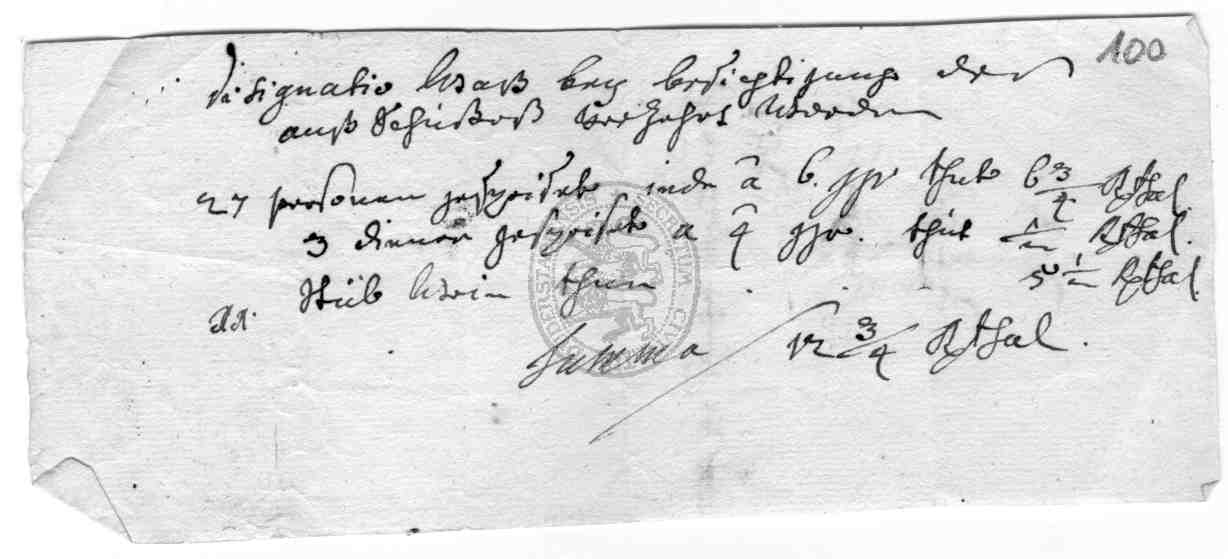 100
disignatio Waß bey besichtigung des
außschußeß verzehrt worden
27 personen gespeiset jede â 6. ggr thut 6 3/4 Rthal.
3 diener gespeiset a 4 ggr. thut 1/2 Rthal.
22. Stüb Wein thun . . . 5 1/2 Rthal.
Summa 12 3/4 Rthal.